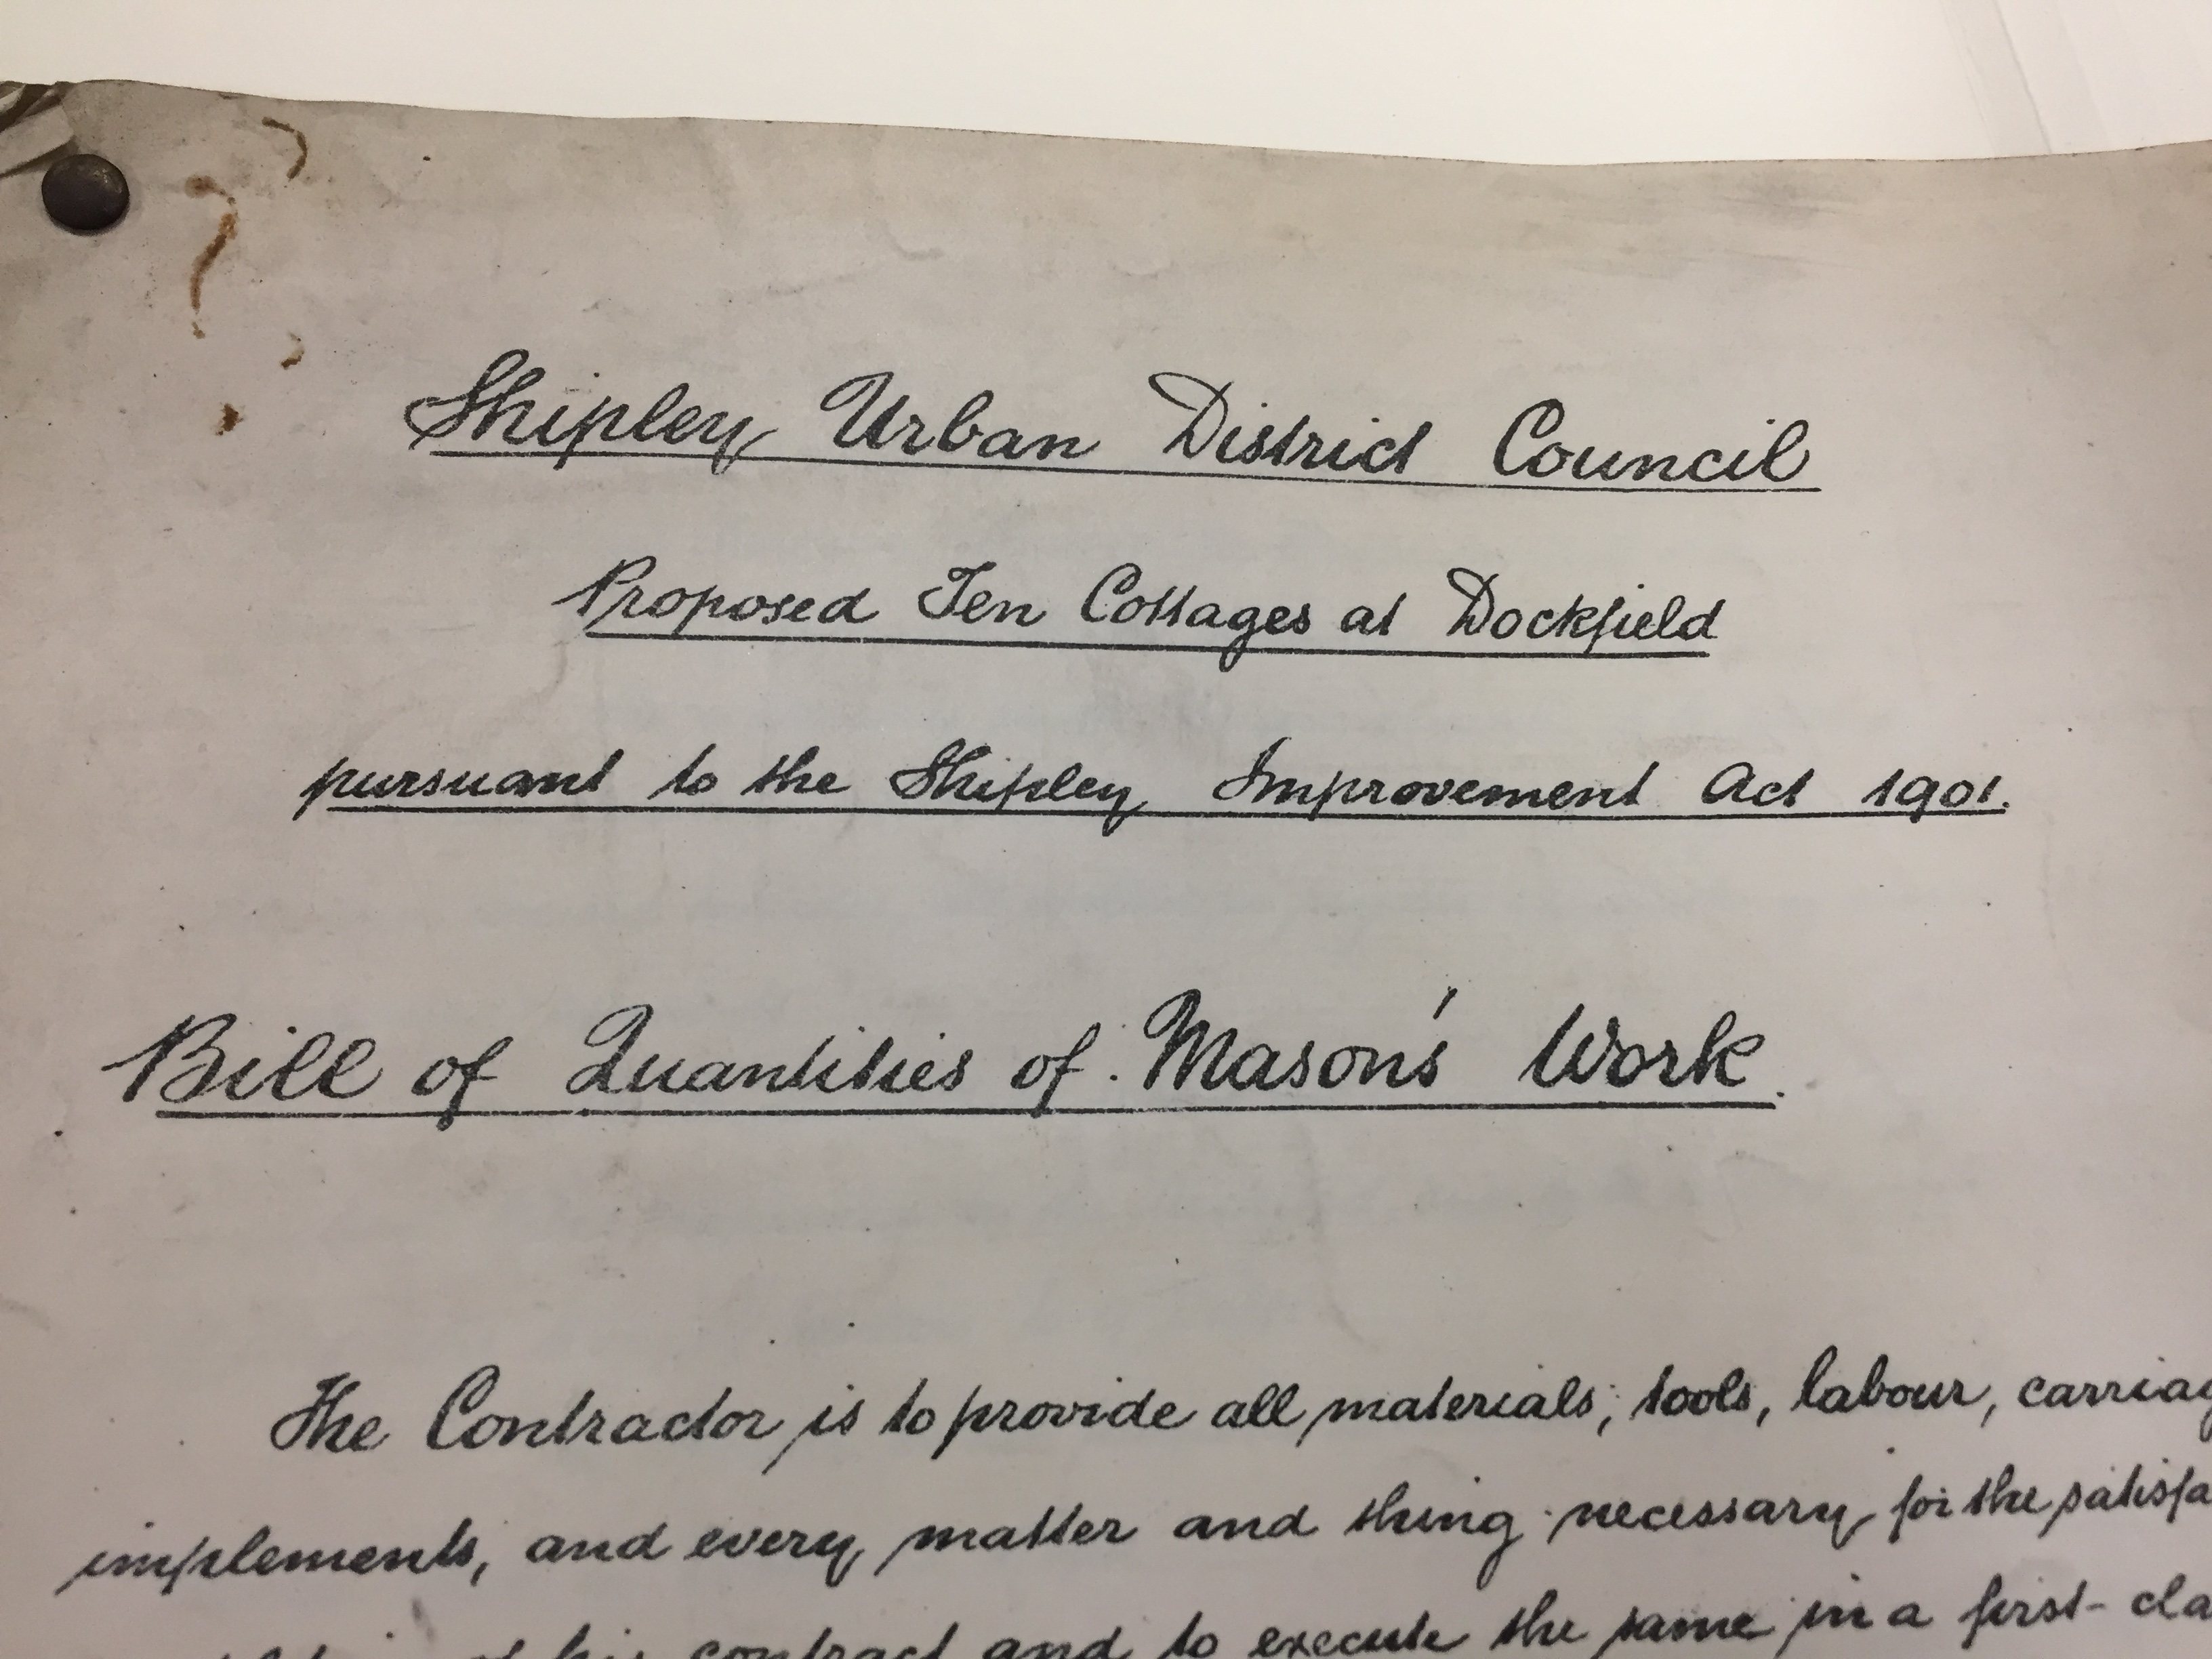 Shipley Urban District Council
Proposed Ten Cottages at Dockfield
pursuant to the Shipley Improvement Act 1901.
Bill of Quantities of Mason's Work.
The Contractor is to provide all materials, tools, labour, carriag
implements, and every matter and thing necessary for the satisfa
of his contract and to execute the same in a first-cla